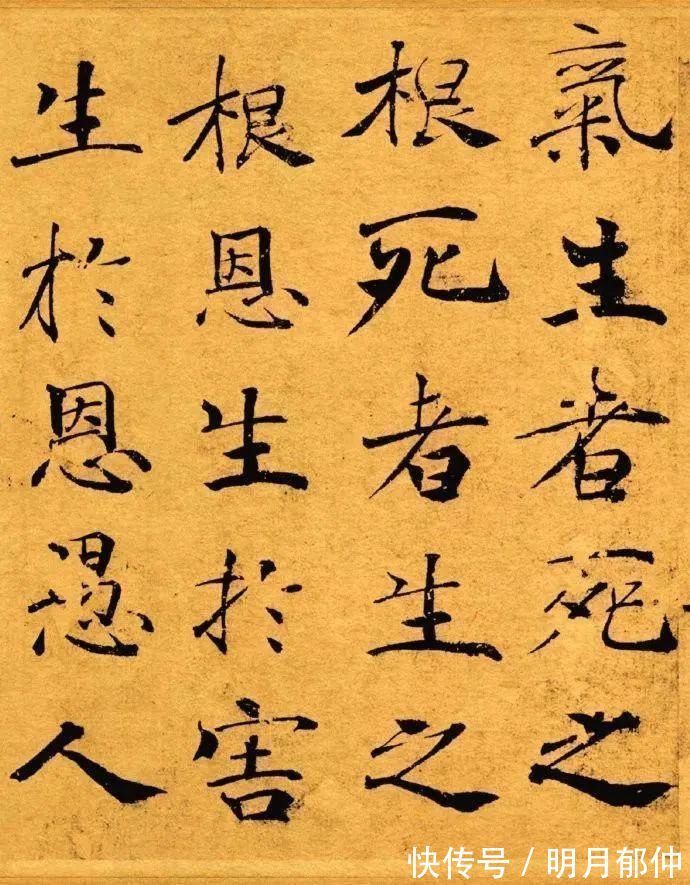 氣生者死之
根死者生之
根恩生於害
生於恩愚人
快传号 / 明月郁仲